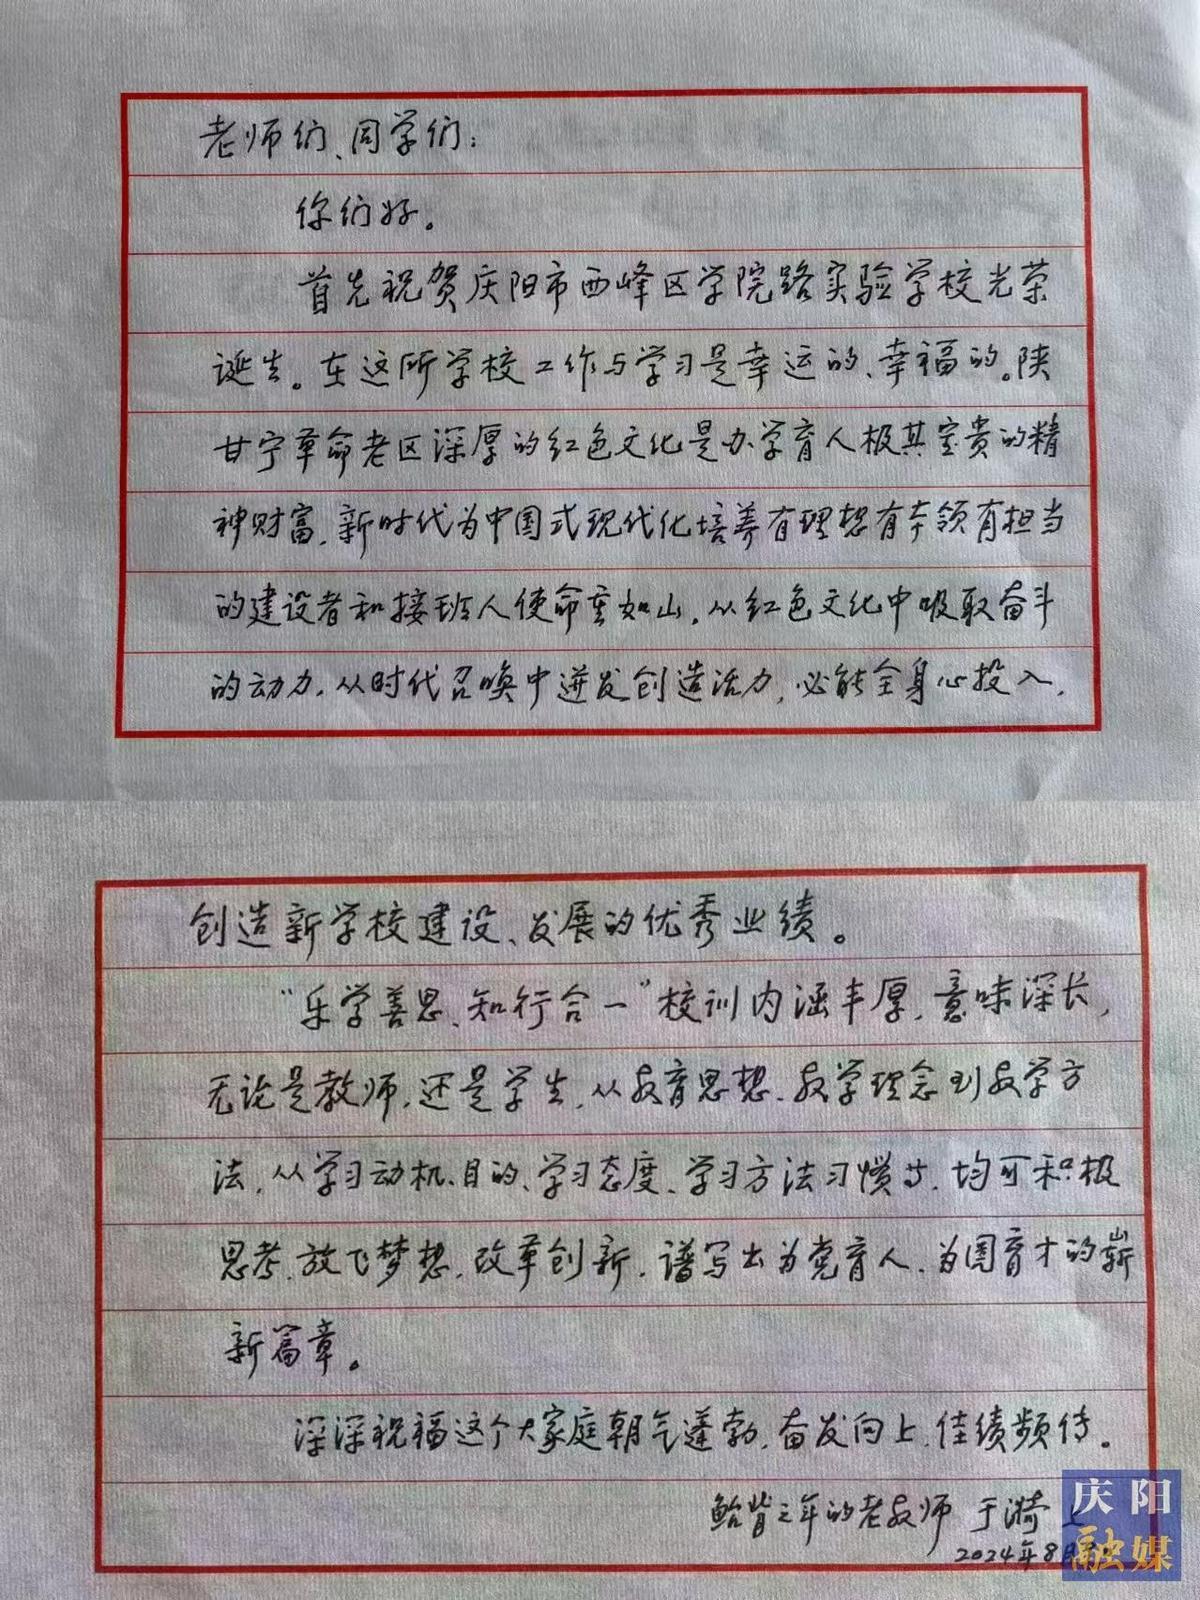 老师们、同学们：
你们好。
首先祝贺庆阳市西峰区学院路实验学校光荣
诞生。在这所学校工作与学习是幸运的、幸福的。陕
甘宁革命老区深厚的红色文化是办学育人极其宝贵的精
神财富，新时代为中国式现代化培养有理想有本领有担当
的建设者和接班人使命重如山，从红色文化中吸取奋斗
的动力，从时代召唤中迸发创造活力，必能全身心投入，
创造新学校建设、发展的优秀业绩。
“乐学善思、知行合一”校训内涵丰厚，意味深长，
无论是教师，还是学生，从教育思想、教学理念到教学方
法，从学习动机、目的、学习态度、学习方法习惯等，均可积极
思考，放飞梦想，改革创新，谱写出为党育人、为国育才的崭
新篇章。
深深祝福这个大家庭朝气蓬勃，奋发向上，佳绩频传。
鲐背之年的老教师 于漪 上
2024年8月
庆阳
融媒